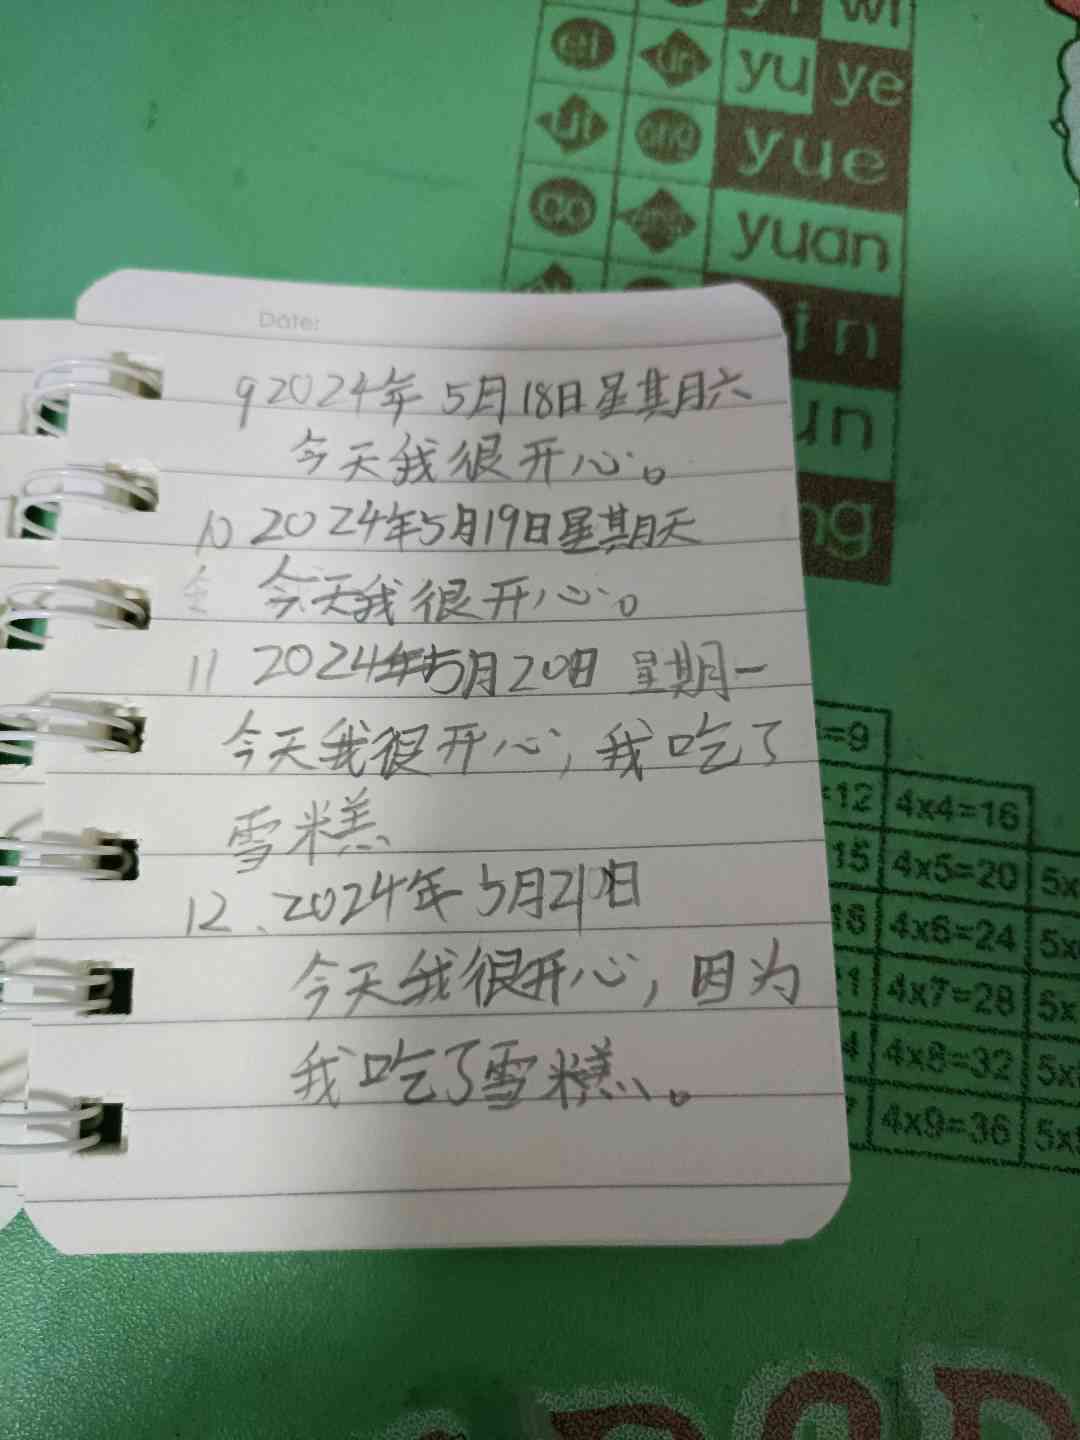 ei un yu ye
üe ang yue
ao yuan
in
un
ng
Date:
9 2024年 5月18日星其月六
今天我很开心。
10 2024年5月19日星期天
今天我很开心。
11 2024年5月20日 星期一
今天我很开心，我吃了
雪糕
12、2024年5月21日
今天我很开心，因为
我吃了雪糕。
=9
=12 4x4=16
15 4x5=20 5x
18 4x6=24 5x
4x7=28 5x
4x8=32 5x
4x9=36 5x